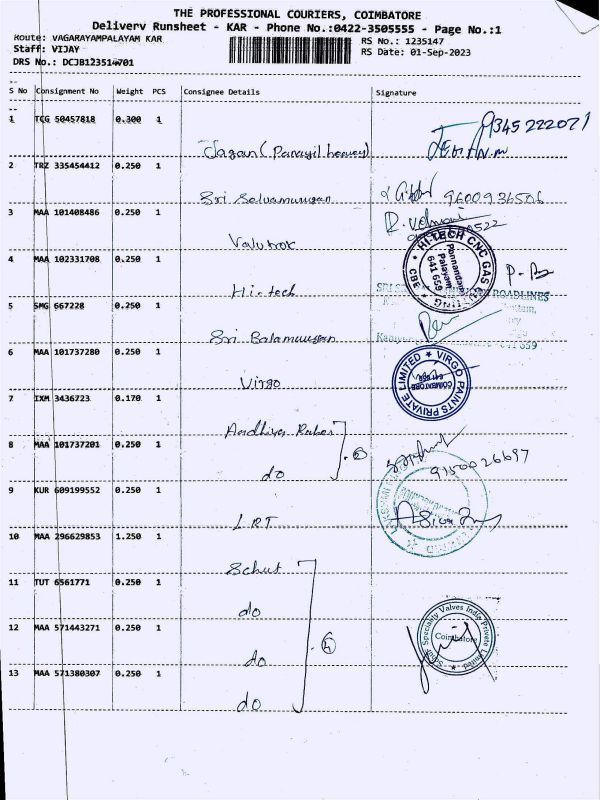 THE PROFESSIONAL COURIERS, COIMBATORE
Delivery Runsheet - KAR - Phone No.:0422-3505555 - Page No.:1
Route: VAGARAYAMPALAYAM KAR
RS No.: 1235147
Staff: VIJAY
RS Date: 01-Sep-2023
DRS No.: DCJB123514701
S No Consignment No Weight PCS Consignee Details Signature
1 TCG 50457818 0.300 1
9345222071
2 TRZ 335454412 0.250 1
Sri Selvamurugan 9600936506
3 MAA 101408486 0.250 1
4 MAA 102331708 0.250 1
HI-TECH CNC GAS
Ponnandam
Palayam
641 659
CBE
Hi-tech
5 SMG 667228 0.250 1
ROADLINES
Sri Balamurugan
641 659
6 MAA 101737280 0.250 1
Virgo
VIRGO PAINTS PRIVATE LIMITED
COIMBATORE
7 IXM 3436723 0.170 1
8 MAA 101737201 0.250 1
do
9150026697
9 KUR 609199552 0.250 1
LRT
10 MAA 296629853 1.250 1
11 TUT 6561771 0.250 1
do
12 MAA 571443271 0.250 1
do
Specialty Valves India Private Limited
Coimbatore
13 MAA 571380307 0.250 1
do